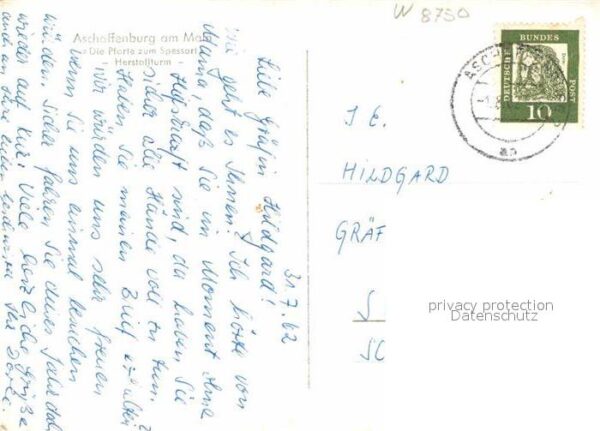 W 8750
Aschaffenburg am Main
Die Pforte zum Spessart
- Herstallturm -
31.7.62
Liebe Gräfin Hildgard!
Wie geht es Ihnen? Ich hörte von
Mama, daß Sie im Moment ohne
Hilfskraft sind, da haben Sie
sicher alle Hände voll zu tun.
Haben Sie meinen Brief erhalten
Wir würden uns sehr freuen
wenn Sie uns einmal besuchen
würden. Sicher fahren Sie dieses Jahr doch
wieder auf Kur. Viele herzliche Grüße
auch an Ihre
DEUTSCHE
BUNDES
POST
10
ASCH
HILDGARD
GRÄF
S
SC
privacy protection
Datenschutz